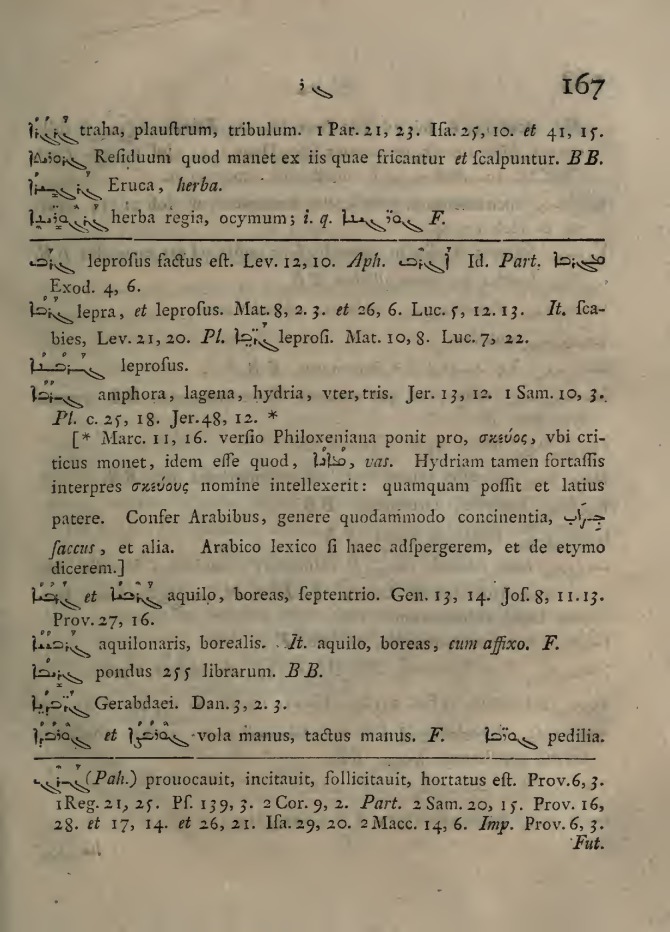 ܓܪ 167
traha, plauſtrum, tribulum. 1 Par. 21, 23. Iſa. 25, 10. et 41, 15.
Reſiduum quod manet ex iis quae fricantur et ſcalpuntur. BB.
Eruca, herba.
herba regia, ocymum; i. q. F.
leproſus factus eſt. Lev. 12, 10. Aph. Id. Part.
Exod. 4, 6.
ܓܪܒܐ lepra, et leproſus. Mat. 8, 2. 3. et 26, 6. Luc. 5, 12. 13. It. ſca-
bies, Lev. 21, 20. Pl. ܓܪ̈ܒܐ leproſi. Mat. 10, 8. Luc. 7, 22.
leproſus.
ܓܪܒܐ amphora, lagena, hydria, vter, tris. Jer. 13, 12. 1 Sam. 10, 3.
Pl. c. 25, 18. Jer. 48, 12. *
[* Marc. 11, 16. verſio Philoxeniana ponit pro, σκεύος, vbi cri-
ticus monet, idem eſſe quod, ܡܐܢܐ, vas. Hydriam tamen fortaſſis
interpres σκεύους nomine intellexerit: quamquam poſſit et latius
patere. Confer Arabibus, genere quodammodo concinentia, جراب
ſaccus, et alia. Arabico lexico ſi haec adſpergerem, et de etymo
dicerem.]
et ܓܪܒܝܐ aquilo, boreas, ſeptentrio. Gen. 13, 14. Joſ. 8, 11. 13.
Prov. 27, 16.
aquilonaris, borealis. It. aquilo, boreas, cum affixo. F.
pondus 255 librarum. BB.
Gerabdaei. Dan. 3, 2. 3.
et vola manus, tactus manus. F. pedilia.
ܓܪܓ (Pah.) prouocauit, incitauit, ſollicitauit, hortatus eſt. Prov. 6, 3.
1 Reg. 21, 25. Pſ. 139, 3. 2 Cor. 9, 2. Part. 2 Sam. 20, 15. Prov. 16,
28. et 17, 14. et 26, 21. Iſa. 29, 20. 2 Macc. 14, 6. Imp. Prov. 6, 3.
Fut.